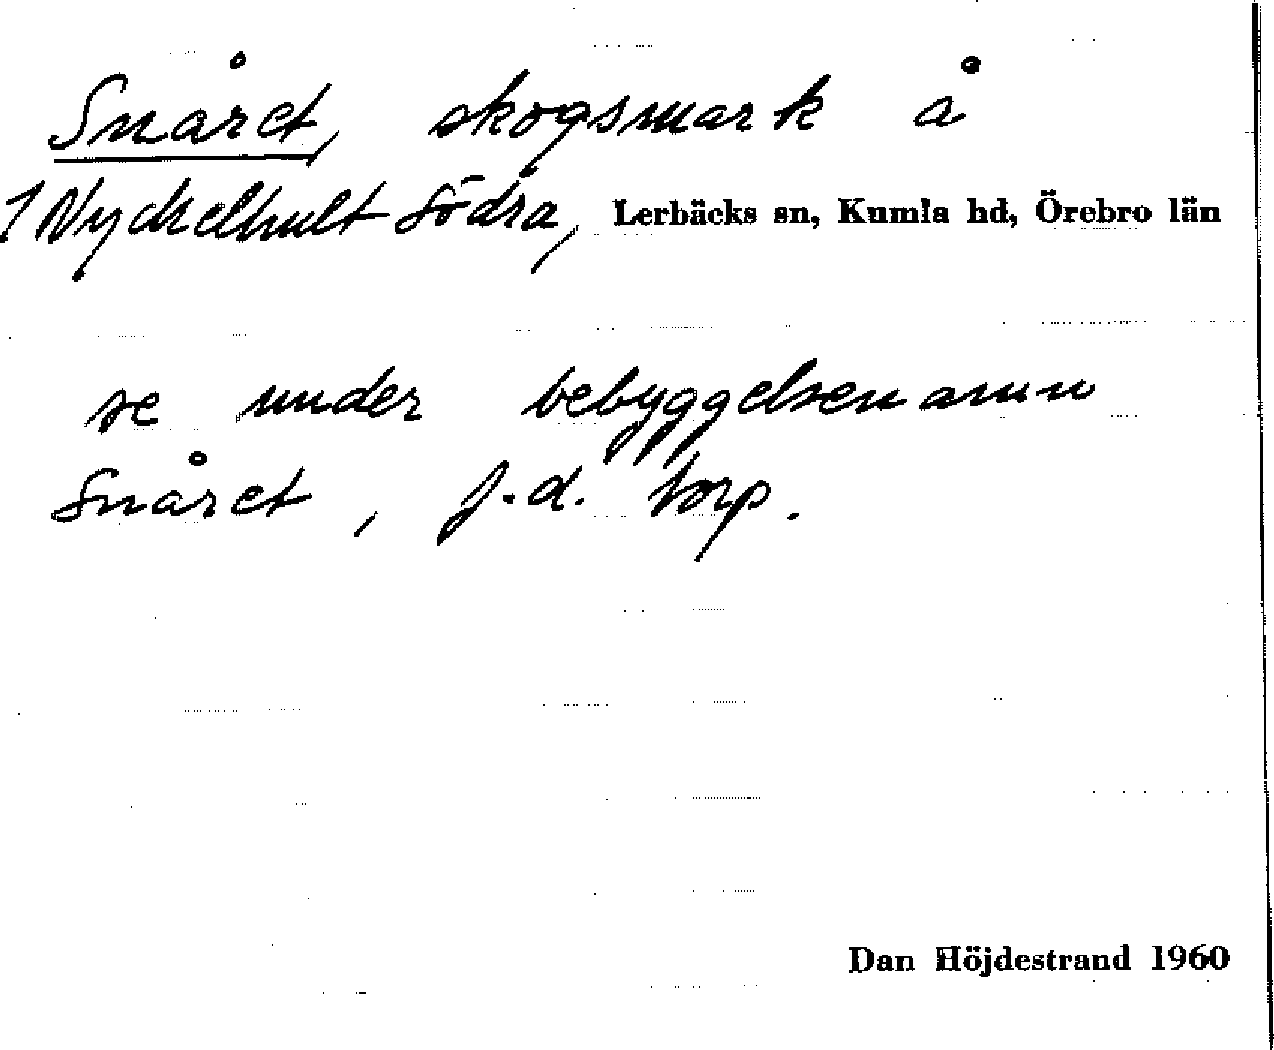 Snåret, skogsmark å
1 Nyckelhult Södra, Lerbäcks sn, Kumla hd, Örebro län
se under bebyggelsenamn
Snåret, f.d. torp.
Dan Höjdestrand 1960